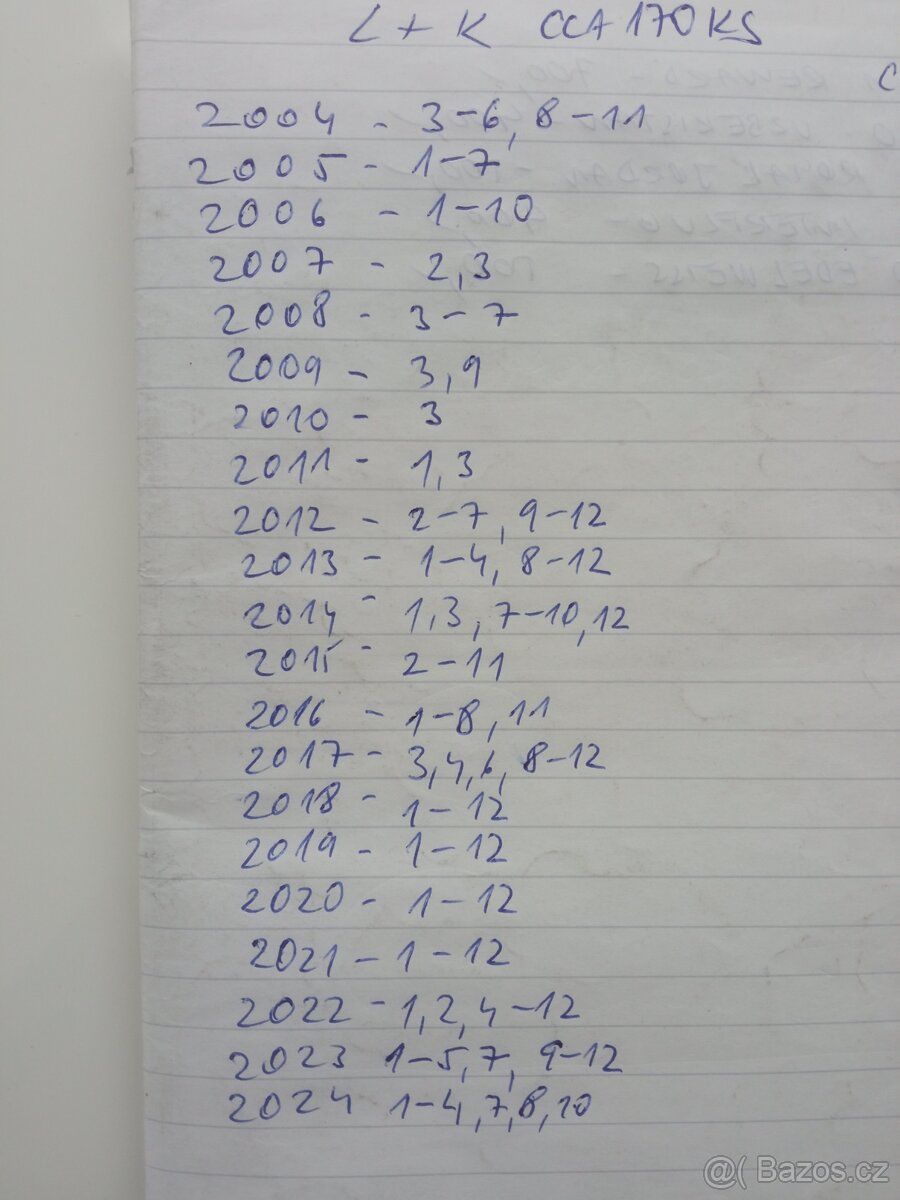 L + K CCA 170 KS
C
2004 - 3-6, 8-11
2005 - 1-7
2006 - 1-10
2007 - 2,3
2008 - 3-7
2009 - 3,9
2010 - 3
2011 - 1,3
2012 - 2-7, 9-12
2013 - 1-4, 8-12
2014 - 1,3, 7-10,12
2015 - 2-11
2016 - 1-8, 11
2017 - 3,4,6, 8-12
2018 - 1-12
2019 - 1-12
2020 - 1-12
2021 - 1-12
2022 - 1,2,4-12
2023 1-5,7, 9-12
2024 1-4,7,8,10
@( Bazos.cz